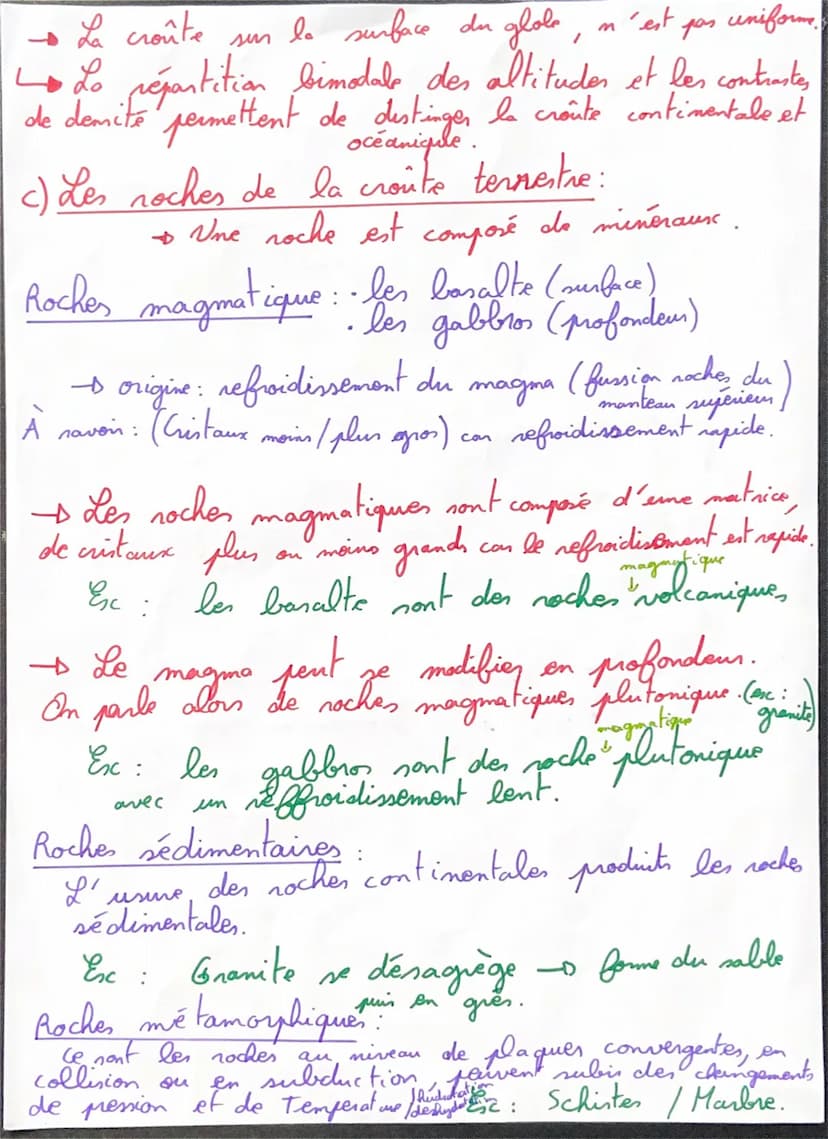 → La croûte sur la surface du globe, n'est pas uniforme.
↳ La répartition bimodale des altitudes et les contrastes
de densité permettent de distinger la croûte continentale et
océanique.
c) Les roches de la croûte terrestre :
→ Une roche est composé de minéraux.
Roches magmatique : · les basalte (surface)
· les gabbros (profondeur)
→ origine : refroidissement du magma (fussion roches du
manteau supérieur)
À savoir : (Cristaux moins/plus gros) car refroidissement rapide.
→ Les roches magmatiques sont composé d'une matrice,
de cristaux plus ou moins grands car le refroidissement est rapide.
magmatique
↓
Ex : les basalte sont des roches volcaniques
→ Le magma peut se modifier en profondeur.
On parle alors de roches magmatiques plutonique. (ex :
granite)
magmatique
↓
Ex : les gabbros sont des roche plutonique
avec un réffroidissement lent.
Roches sédimentaires :
L'usure des roches continentales produits les roches
sédimentales.
Ex : Granite se désagrège → forme du sable
puis en grès.
Roches métamorphiques :
Ce sont les roches au niveau de plaques convergentes, en
collision ou en subduction, peuvent subir des changements
de pression et de Température / Ex : Schistes / Marbre.